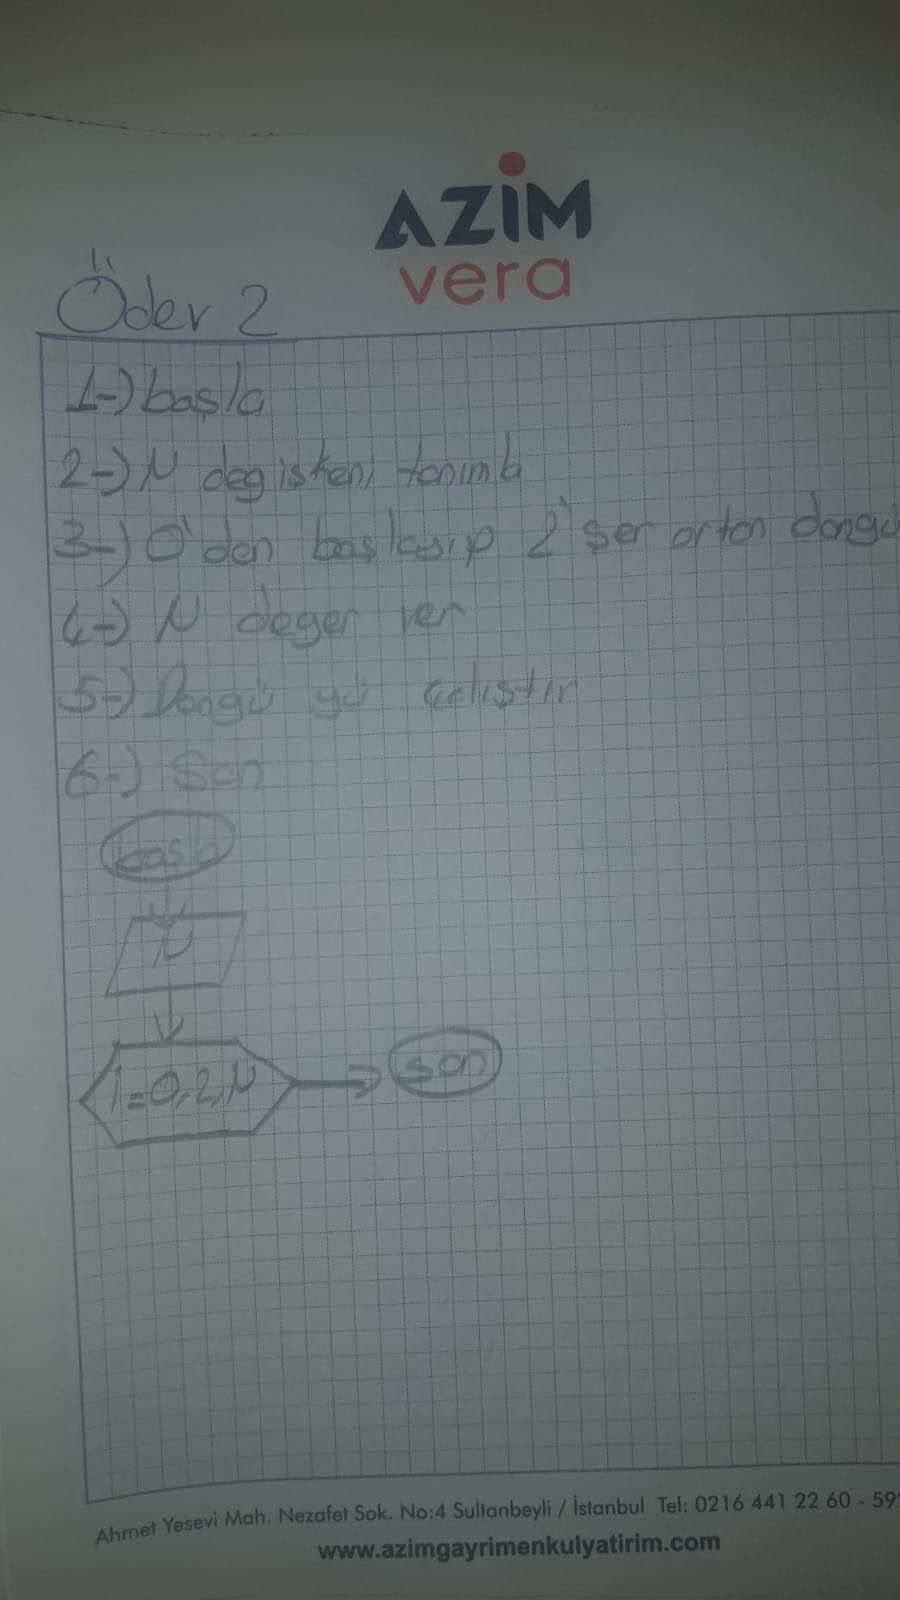 AZİM
vera
Öder 2
1-) başla
2-) N degişkeni tanımla
3-) 0'den başlayıp 2'şer artan döngü
4-) N deger ver
5-) Döngü yü çalıştır
6-) Son
başla
N
i=0,2,N
son
Ahmet Yesevi Mah. Nezafet Sok. No:4 Sultanbeyli / İstanbul Tel: 0216 441 22 60 - 59
www.azimgayrimenkulyatirim.com